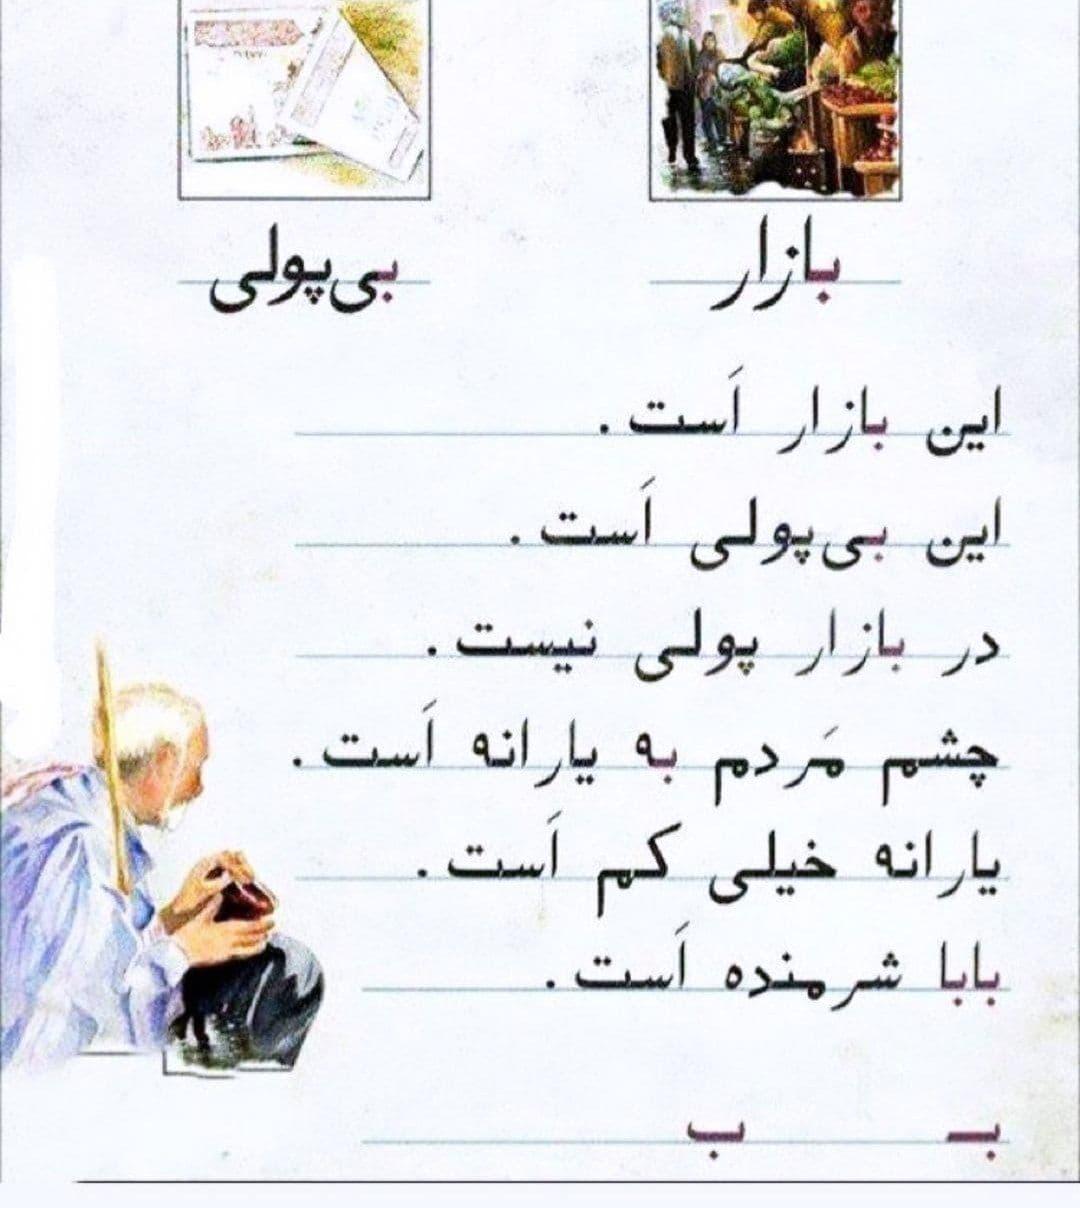 بازار بی‌پولی
این بازار اَست .
این بی‌پولی اَست .
در بازار پولی نیست .
چشم مَردم به یارانه اَست .
یارانه خیلی کم اَست .
بابا شرمنده اَست .
بـ ب